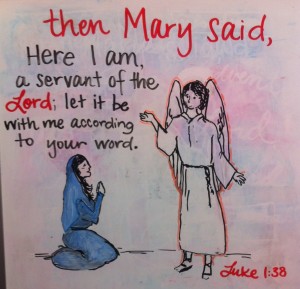 then Mary said,
Here I am,
a servant of the
Lord; let it be
with me according
to your word.
Luke 1:38